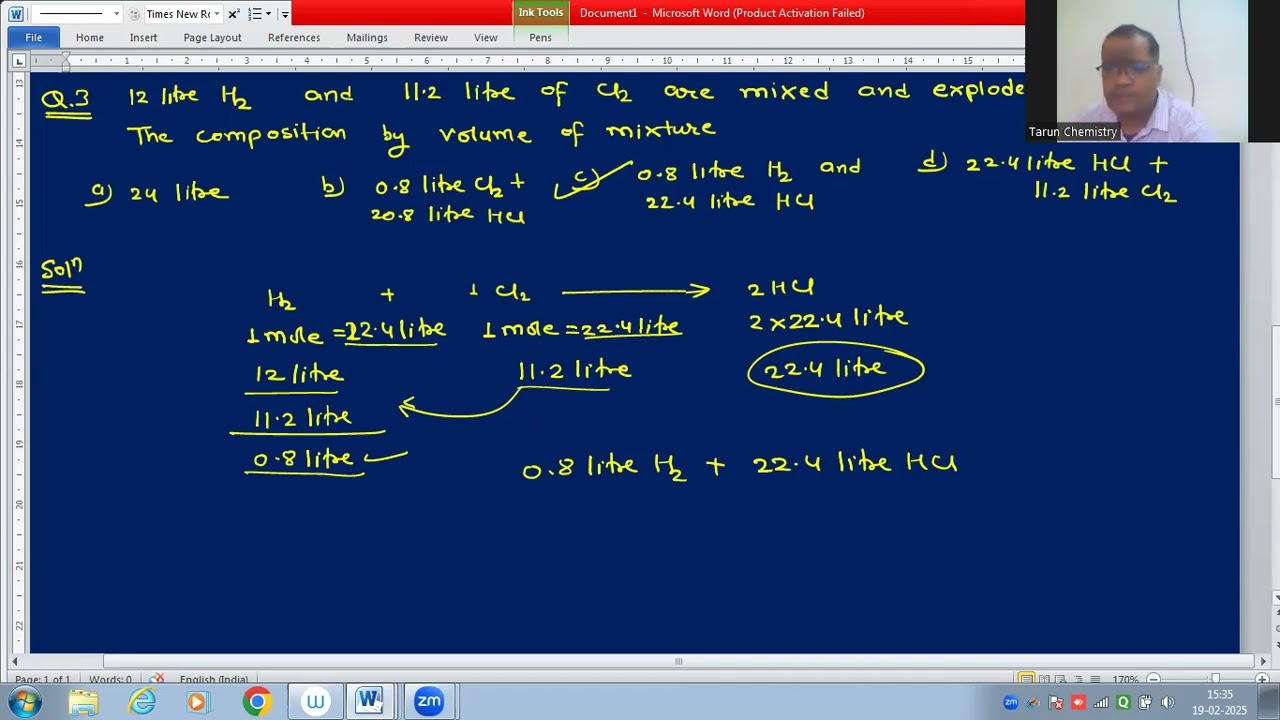 Times New Ro
Ink Tools
Document1 - Microsoft Word (Product Activation Failed)
File Home Insert Page Layout References Mailings Review View Pens
1 2 3 4 5 6 7 8 9 10 11 12 13 14 15
Tarun Chemistry
Q.3 12 litre H2 and 11.2 litre of Cl2 are mixed and explode
The composition by volume of mixture
a) 24 litre
b) 0.8 litre Cl2 +
20.8 litre HCl
c) 0.8 litre H2 and
22.4 litre HCl
d) 22.4 litre HCl +
11.2 litre Cl2
Soln
H2 + 1 Cl2 ⟶ 2HCl
1 mole = 22.4 litre 1 mole = 22.4 litre 2 x 22.4 litre
12 litre 11.2 litre 22.4 litre
11.2 litre
0.8 litre
0.8 litre H2 + 22.4 litre HCl
13
14
15
16
17
18
19
20
21
22
Page: 1 of 1 Words: 0 English (India) 170%
W zm
15:35
19-02-2025